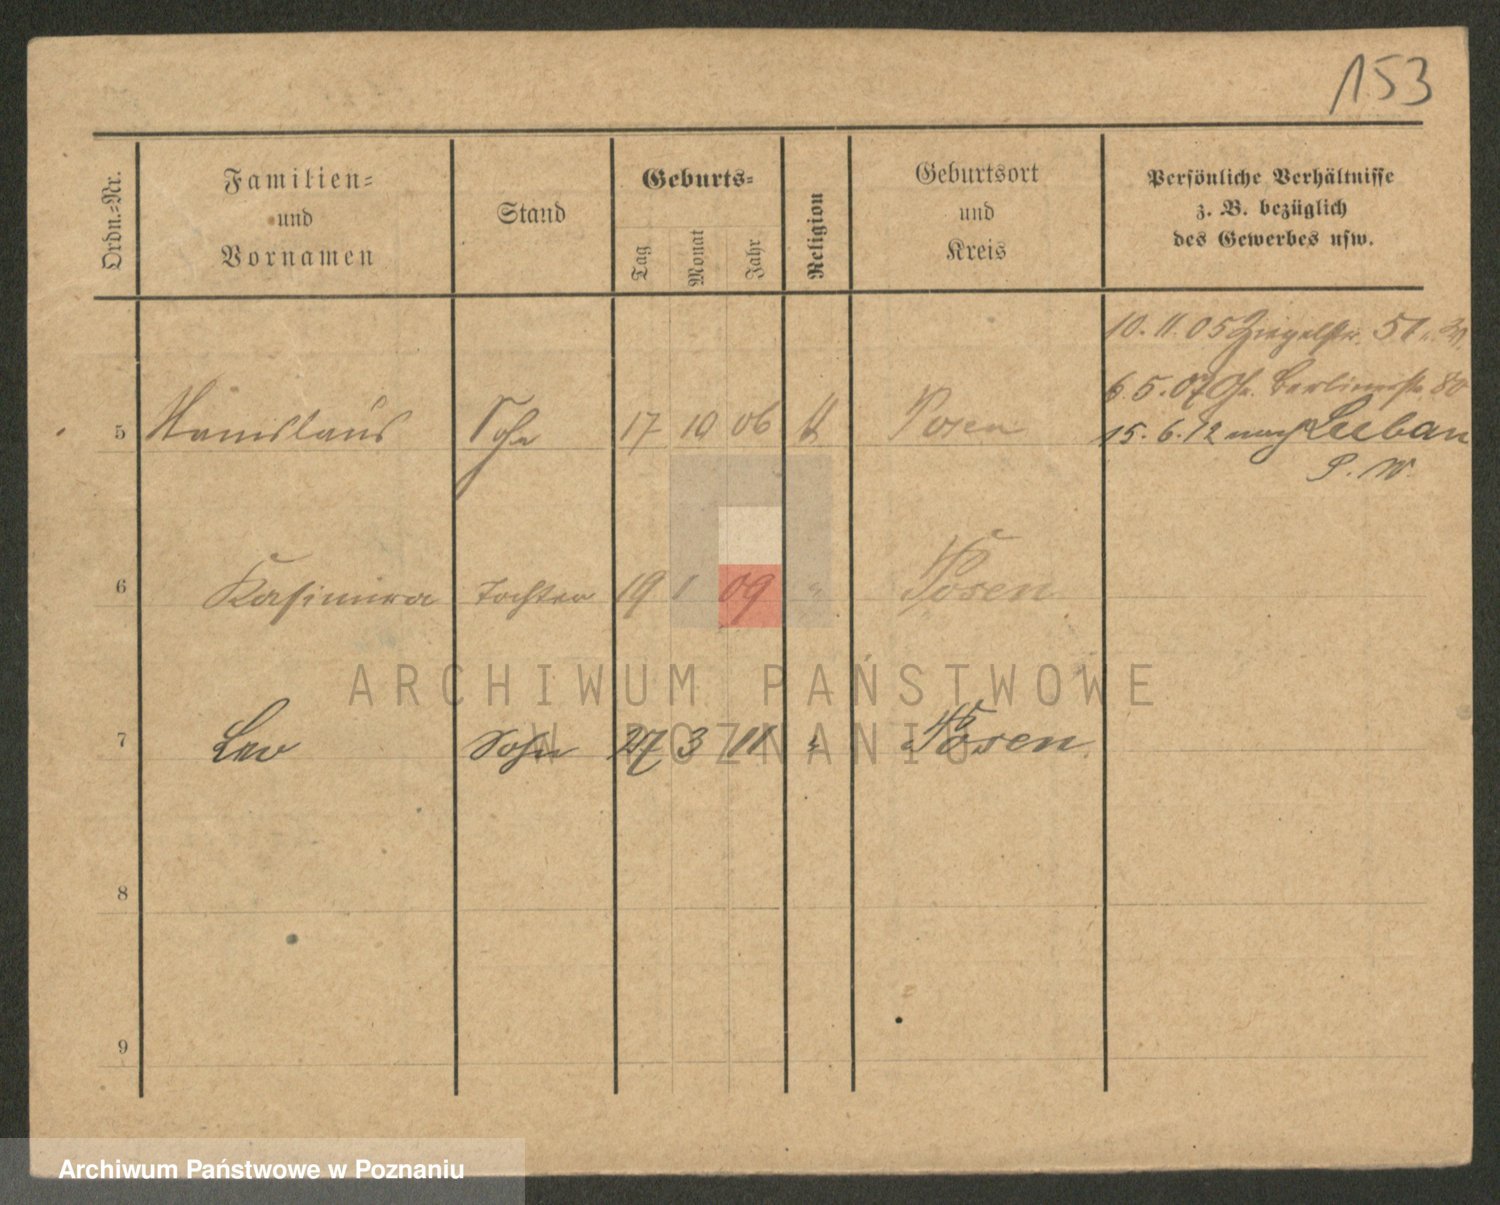 153
Ordn.-Nr.
Familien-
und
Vornamen
Stand
Geburts-
Tag
Monat
Jahr
Religion
Geburtsort
und
Kreis
Persönliche Verhältnisse
z. B. bezüglich
des Gewerbes usw.
10. 11. 05 Ziegelstr. 51
6. 5. 07 Gr. Berlinerstr. 80
5 Stanislaus Sohn 17 10 06 Posen 15. 6. 12 nach Luban
P. W.
6 Kasimira Tochter 19 1 09 " Posen
ARCHIWUM PAŃSTWOWE
W POZNANIU
7 Leo Sohn 27 3 11 " Posen
8
9
Archiwum Państwowe w Poznaniu